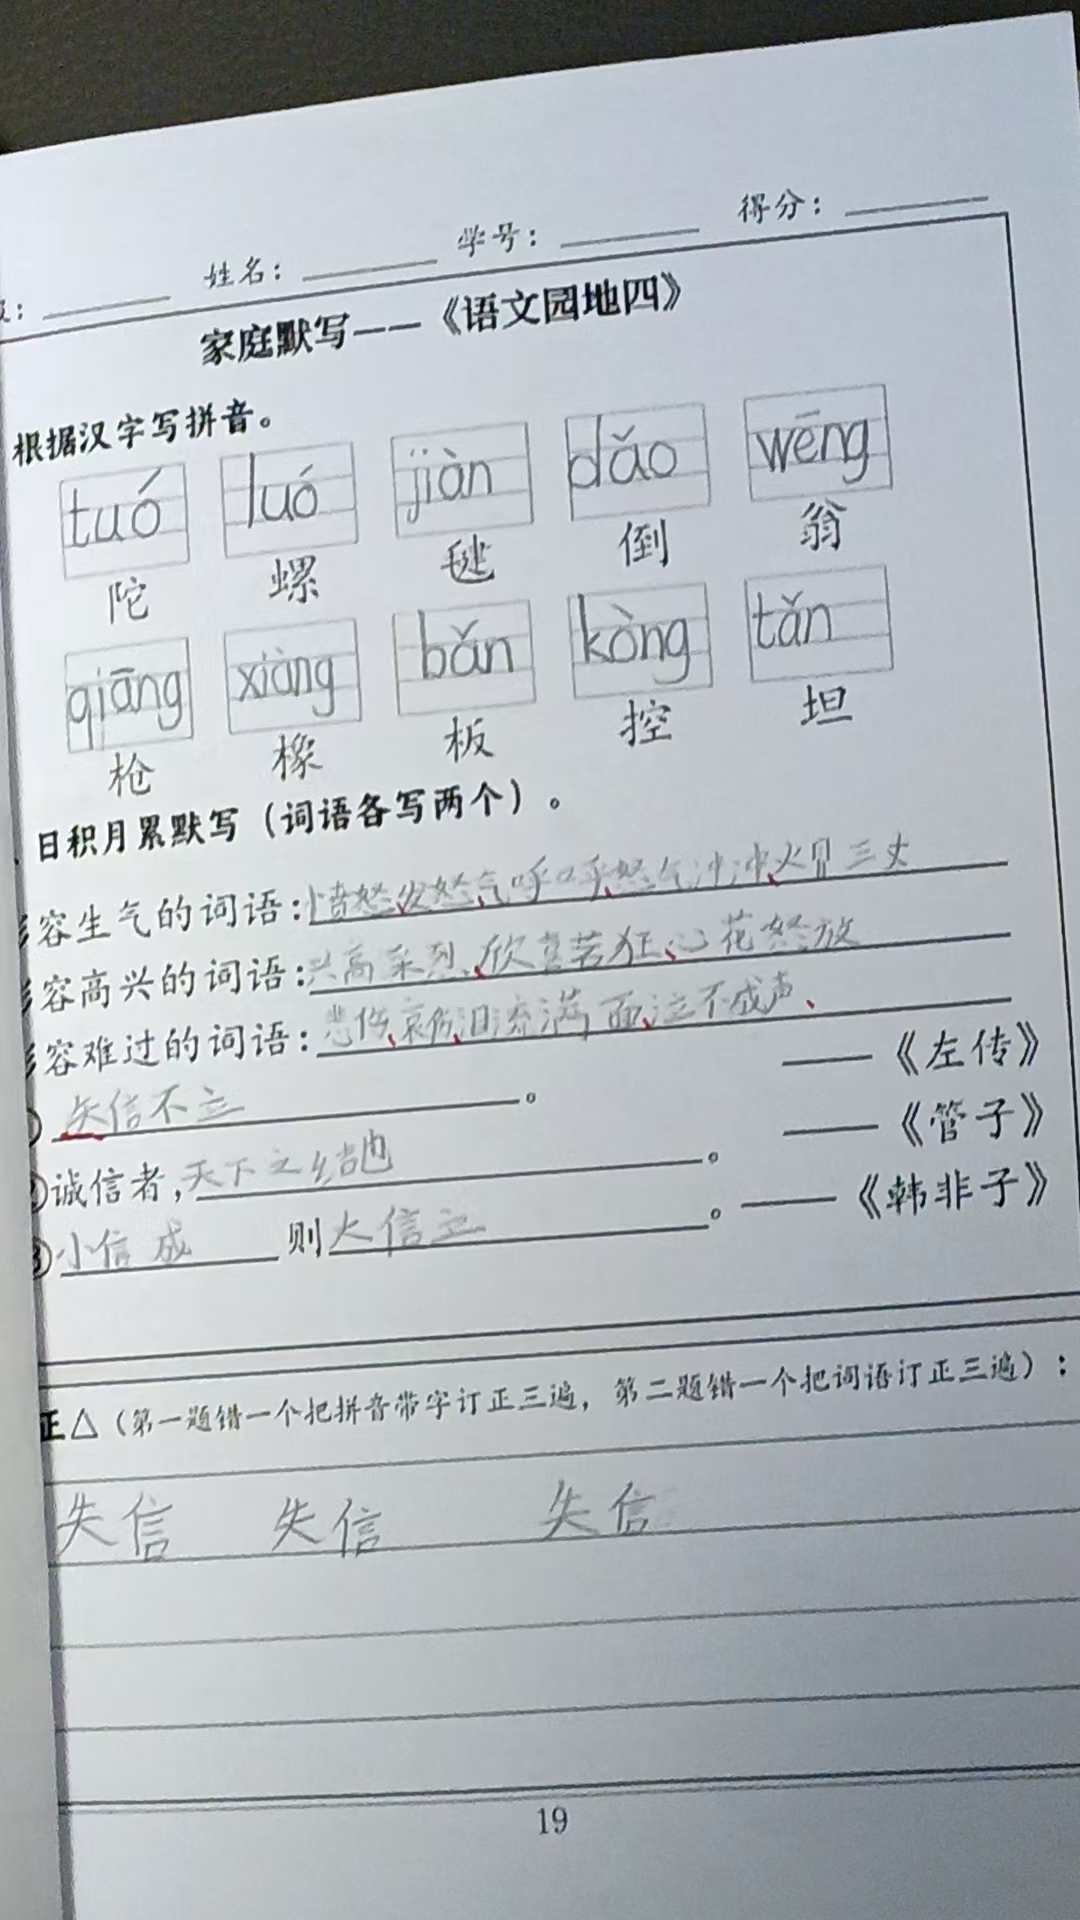 姓名： 学号： 得分：
家庭默写——《语文园地四》
根据汉字写拼音。
tuó luó jiàn dǎo wēng
陀 螺 毽 倒 翁
qiāng xiàng bǎn kòng tǎn
枪 橡 板 控 坦
、日积月累默写（词语各写两个）。
容生气的词语：愤怒、发怒、气呼呼、怒气冲冲、火冒三丈
容高兴的词语：兴高采烈、欣喜若狂、心花怒放
容难过的词语：悲伤、哀伤、泪流满面、泣不成声、
矢信不立。 ——《左传》
诚信者，天下之结也。 ——《管子》
③小信成 则大信立。 ——《韩非子》
正△（第一题错一个把拼音带字订正三遍，第二题错一个把词语订正三遍）：
失信 失信 失信
19